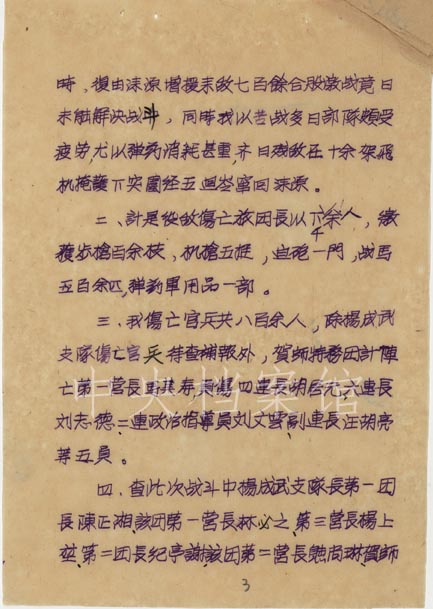 時，復由涞源增援来敌七百餘合股激战竟日
未能解决战斗，同時我以苦战多日部隊頗受
疲劳,尤以弹药消耗甚重,齐日残敌在十余架飛
机掩護下突圍经五迴岺窜回涞源。
二、計是役敌傷亡旅团長以下余人，缴
4
獲步槍百余枝，机槍五挺，自砲一門，战馬
五百余匹,弹药軍用品一部。
三、我傷亡官兵共八百余人，除楊成武
支隊傷亡官兵待查補報外，賀師特務团計陣
亡第一营長田其寿,負傷四連長胡启九,六連長
刘志德,二連政治指導員刘文雙,副連長汪胡亭
等五員。
四、查此次战斗中楊成武支隊長第一团
長陳正湘,該团第一营長林必之,第三营長楊上
堃,第二团長紀亭謝,該团第二营長尚琳,賀師
3
中央档案馆